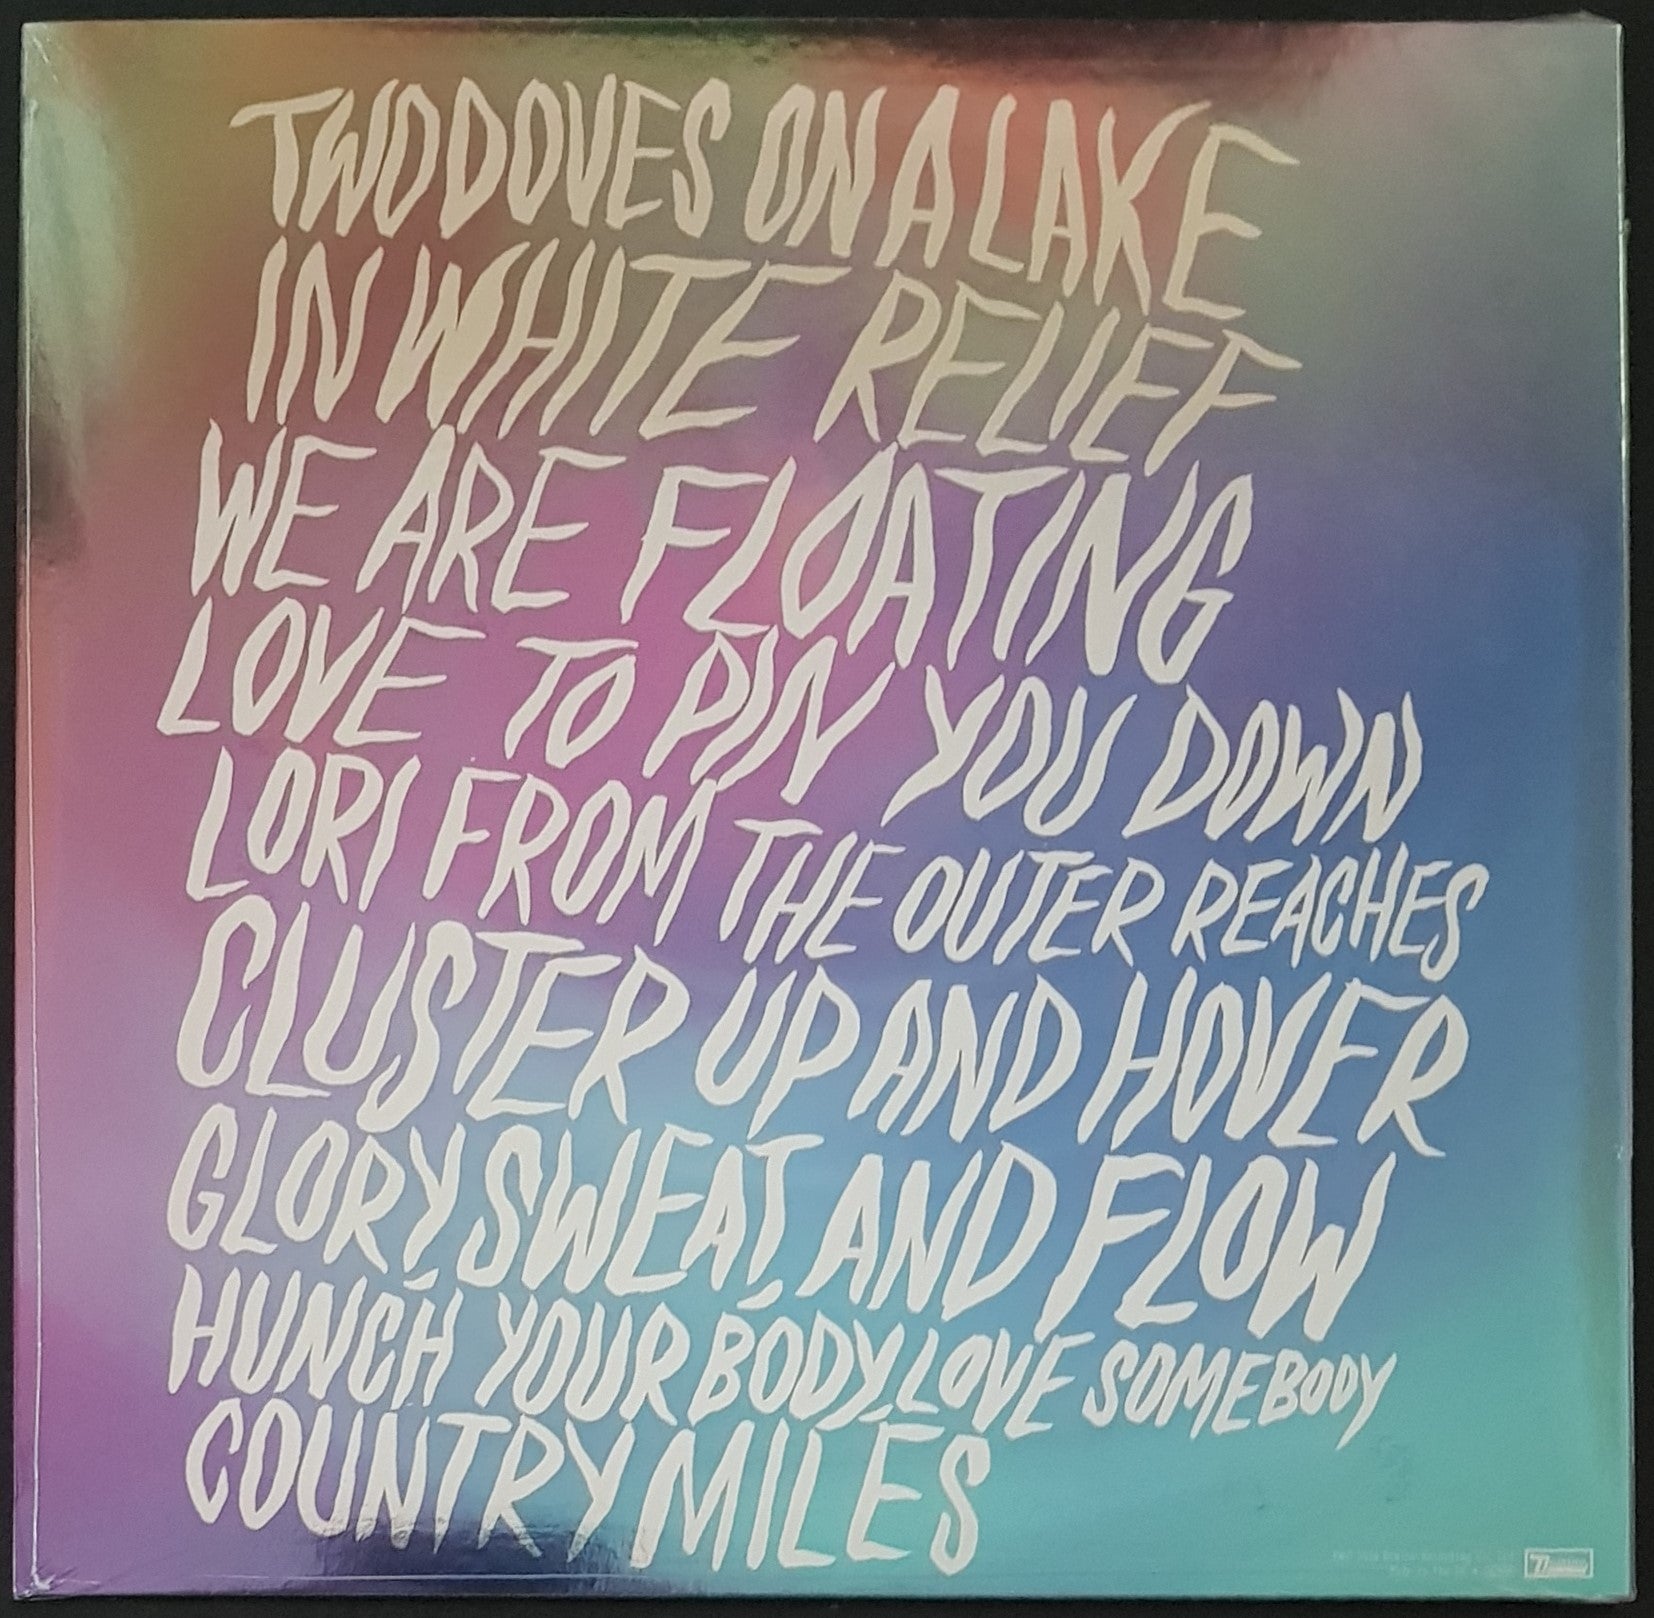 TWO DOVES ON A LAKE
IN WHITE RELIEF
WE ARE FLOATING
LOVE TO PIN YOU DOWN
LORI FROM THE OUTER REACHES
CLUSTER UP AND HOVER
GLORY SWEAT AND FLOW
HUNCH YOUR BODY, LOVE SOMEBODY
COUNTRY MILES